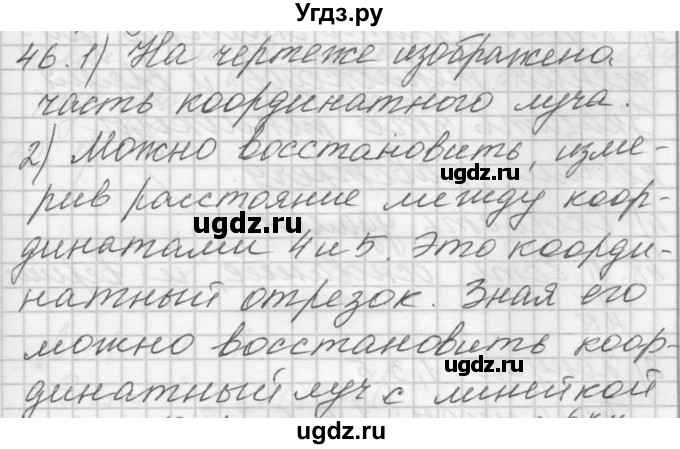 Угдз.ру
46. 1) На чертеже изображена
часть координатного луча.
2) Можно восстановить, изме-
uqdz.ru
рив расстояние между коор-
uqdz.ru
динатами 4 и 5. Это коорди-
натный отрезок. Зная его
можно восстановить коор-
uqdz.ru
динатный луч с линейкой
uqdz.ru